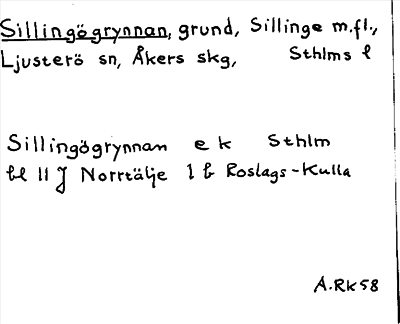 Sillingögrynnan, grund, Sillinge m.fl.,
Ljusterö sn, Åkers skg, Sthlms l
Sillingögrynnan e k Sthlm
bl 11 J Norrtälje 1 b Roslags-Kulla
A.RK58